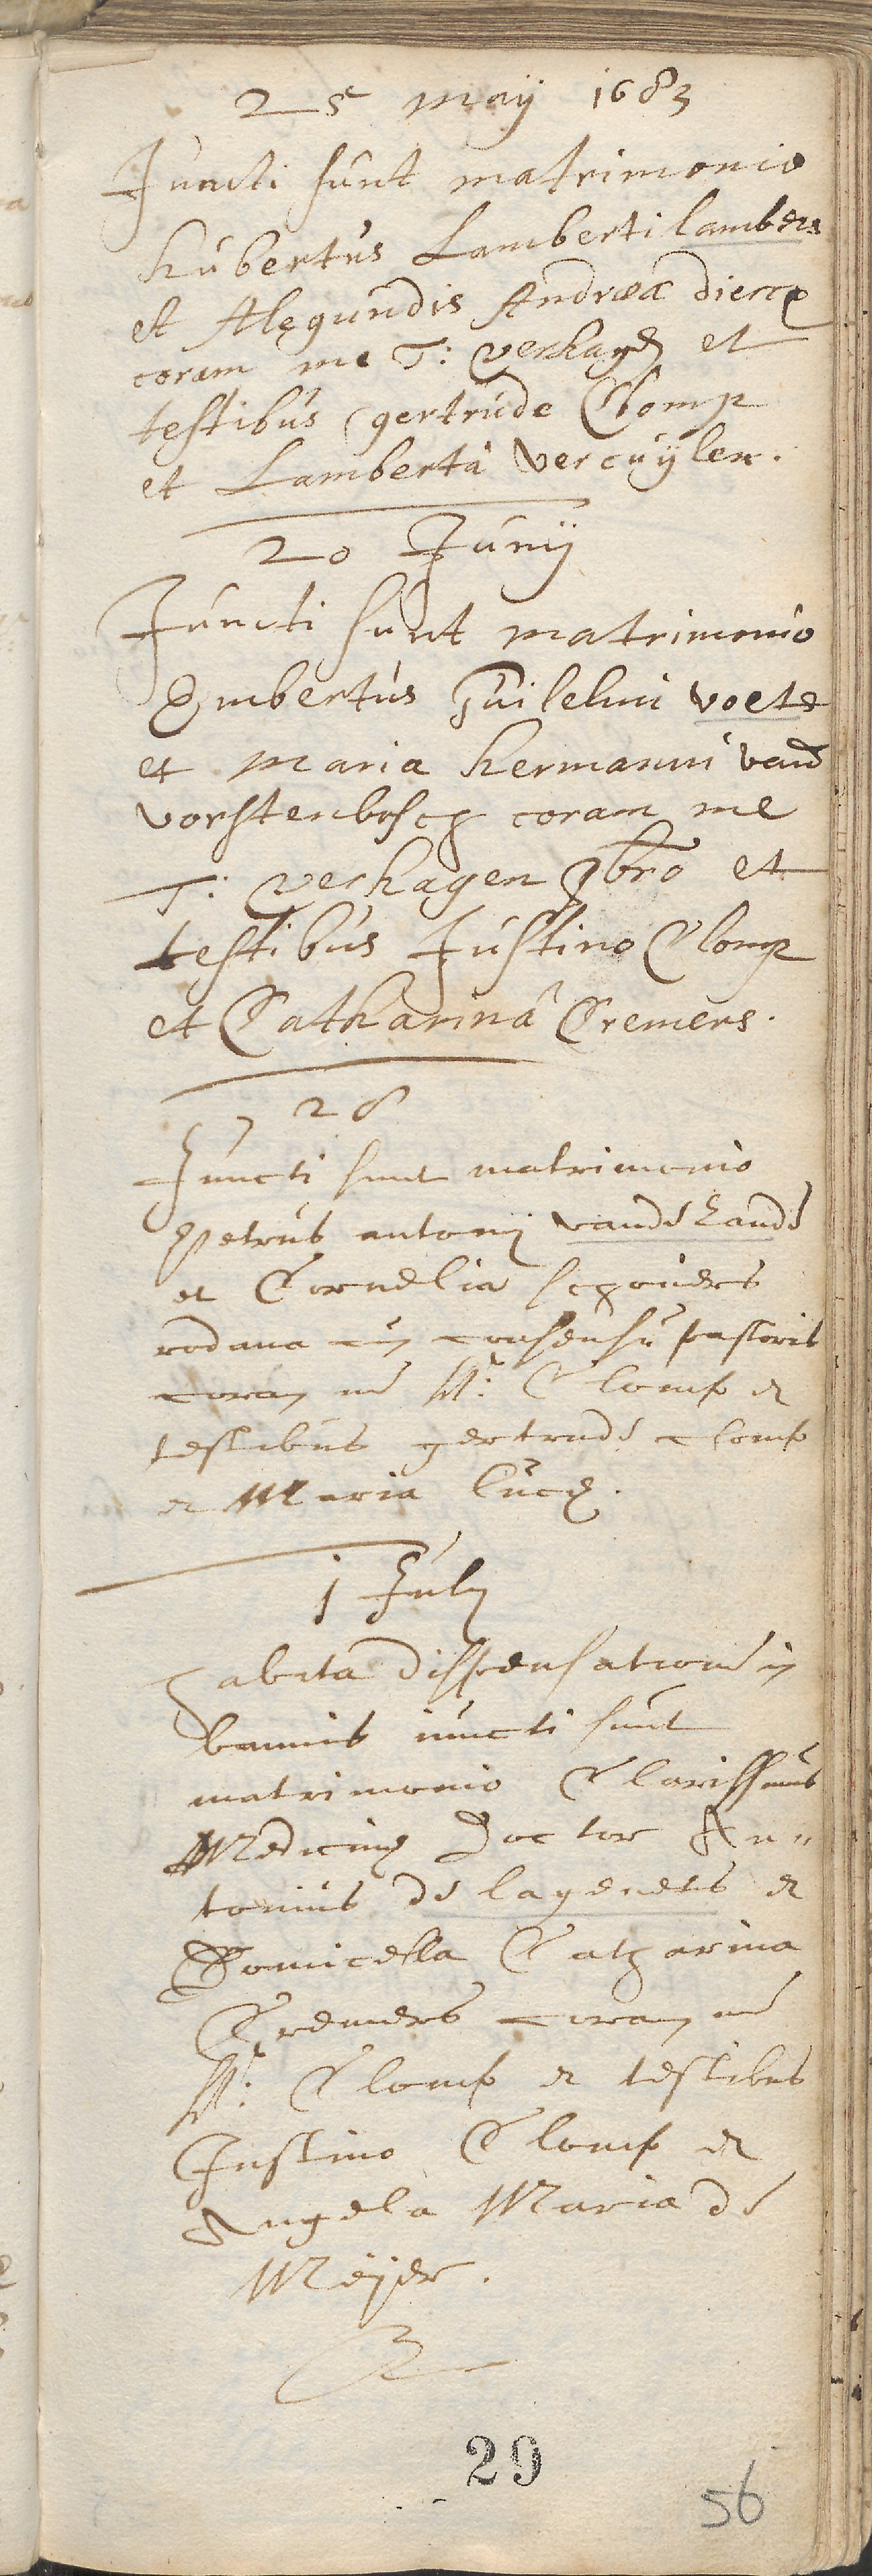 25 maÿ 1683
Juncti sunt matrimonio
hubertus Lamberti lambers
et Alegundis Andreæ diercx
coram me T: verhagen et
testibus gertrude Clomp
et Lamberta vercuÿlen.
20 Junÿ
Juncti sunt matrimonio
Embertus Guilelmi voets
et maria hermanni vand
vorstenbosch coram me
T: verhagen pbro et
testibus Justino Clomp
et Catharinâ Cremers.
28
Juncti sunt matrimonio
Petrus antonij vande Sande
et Cornelia schoners
rodana cum consensu pastoris
coram me M: Clomp et
testibus gertrude Clomp
et Maria
1 July
habita dispensatione in
bannis iuncti sunt
matrimonio Clarissimus
Medicinæ Doctor An„
tonius de lagenets et
Domicella Catharina
Cremers coram me
M: Clomp et testibus
Justino Clomp et
Angela Maria de
Meÿer.
29
56